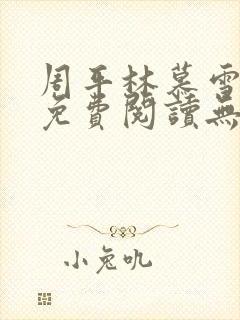 周平林慕雪
免費閱讀無
小兔吼